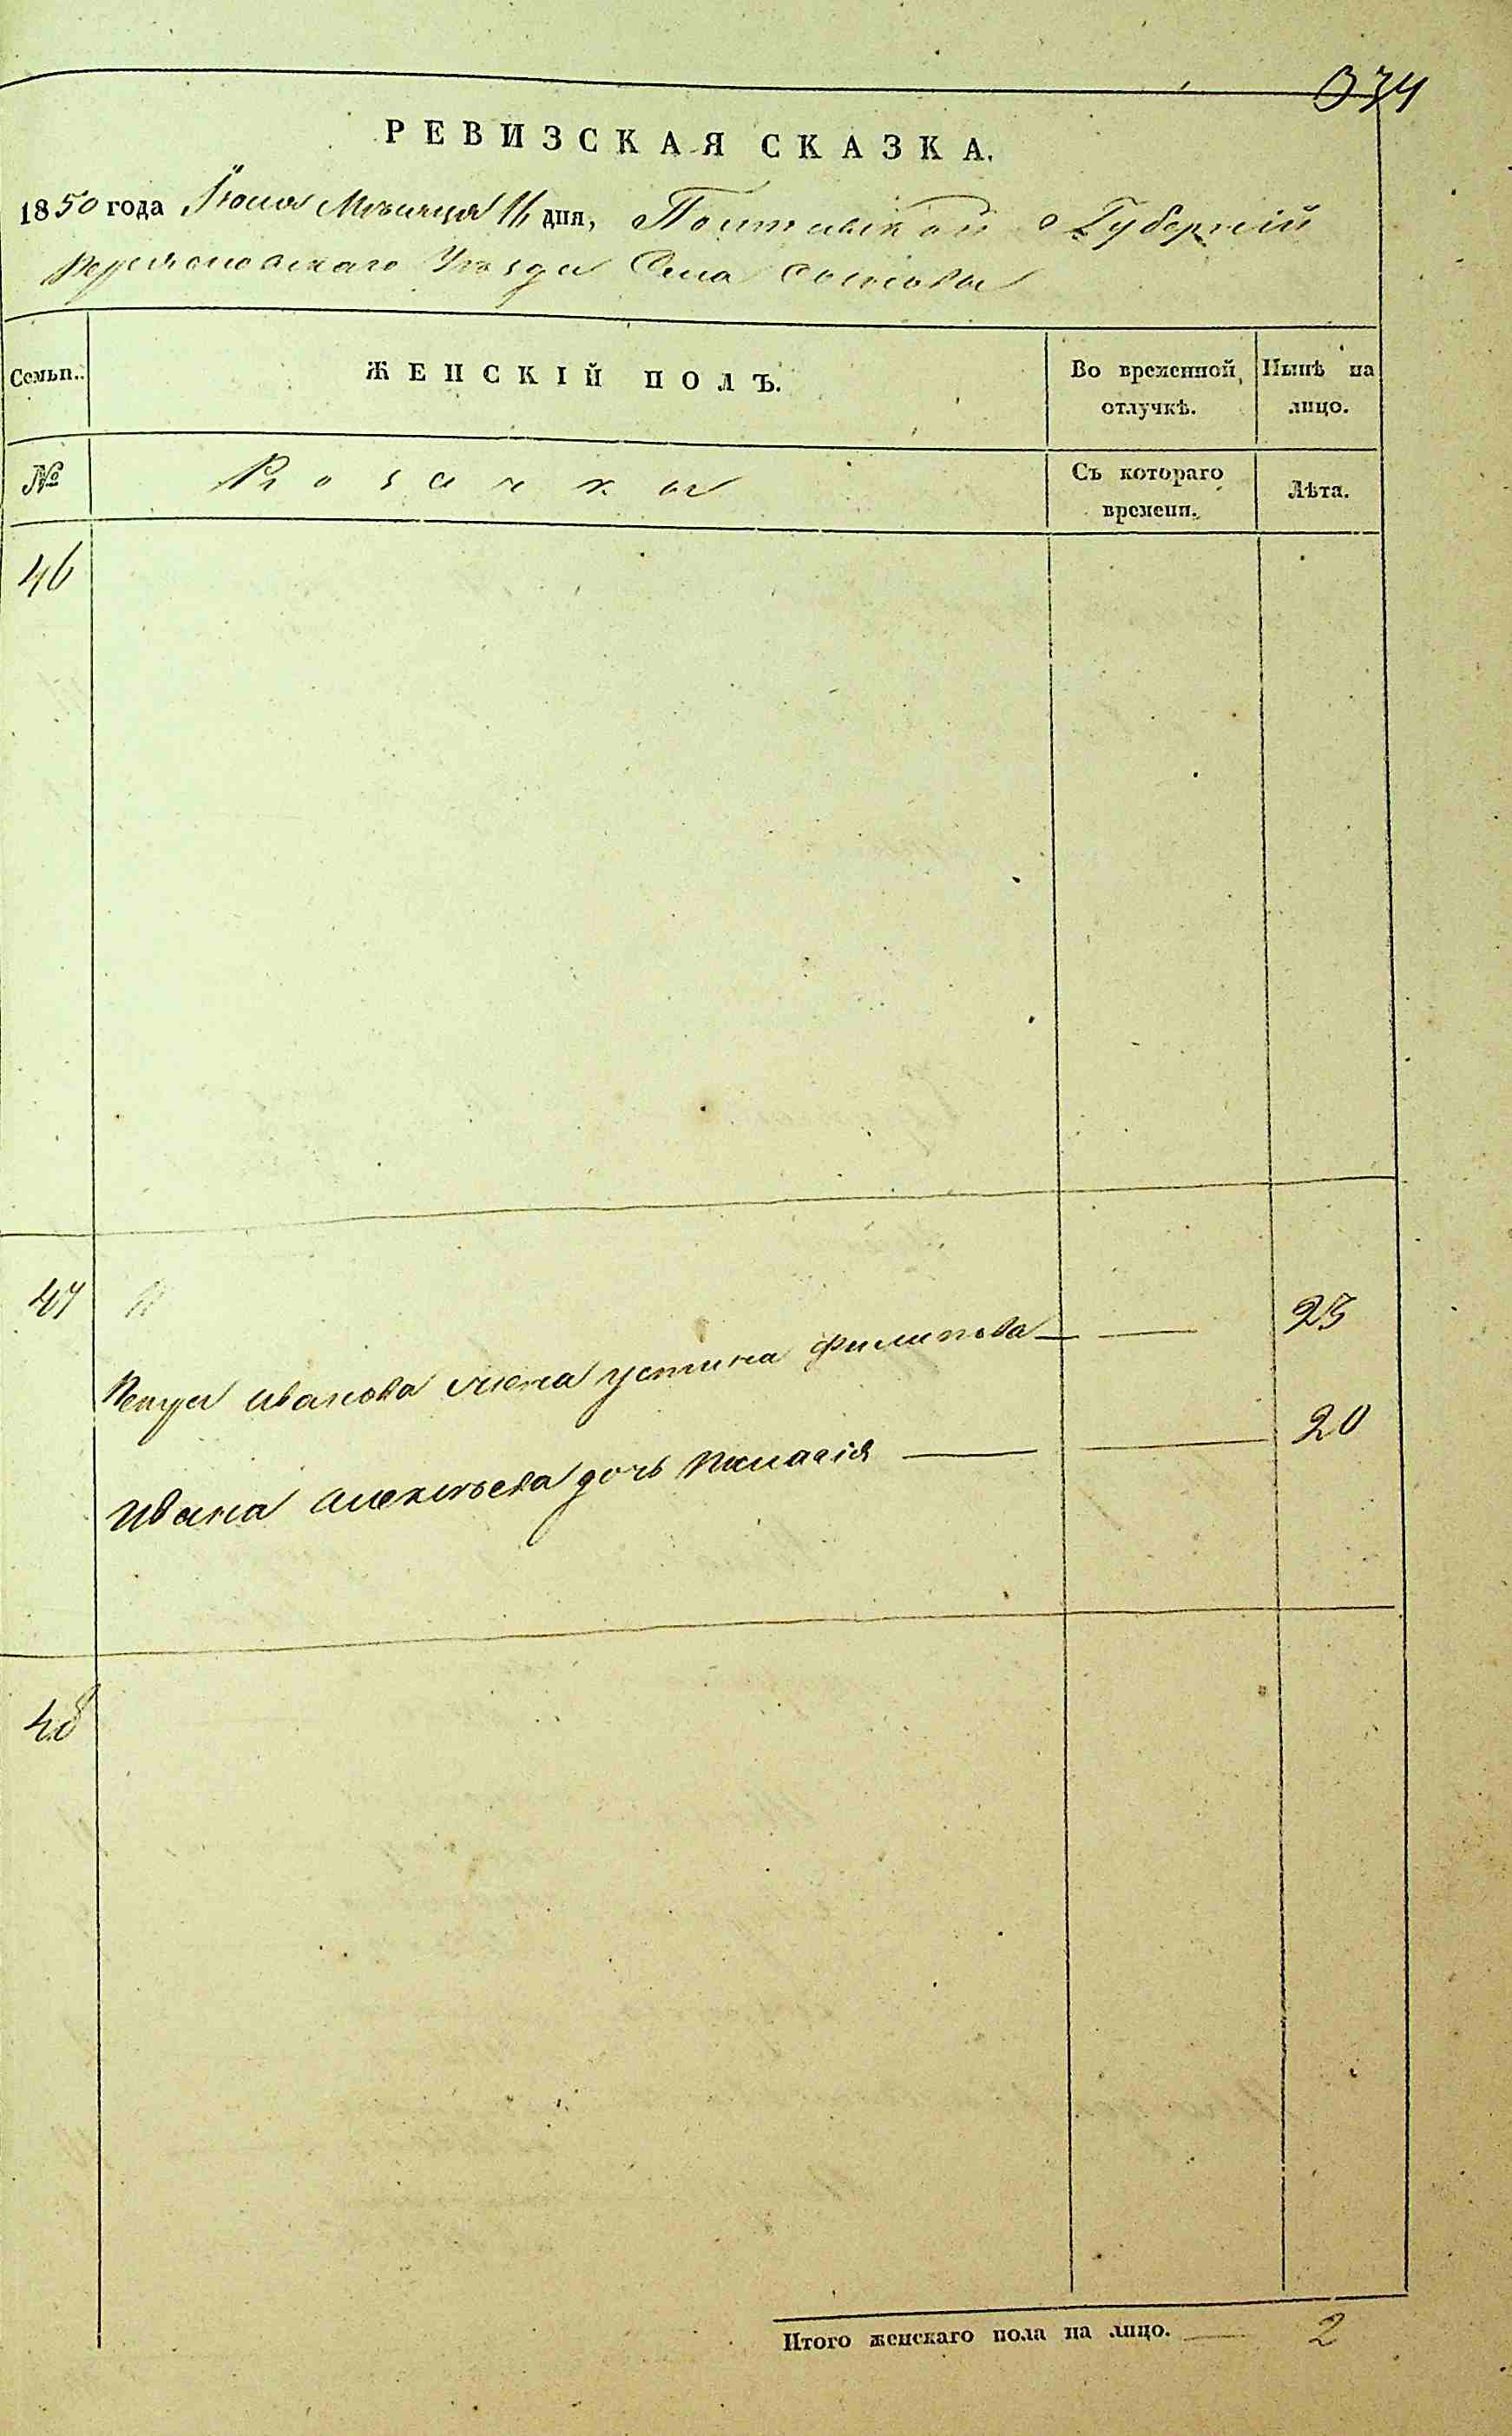 034
РЕВИЗСКАЯ СКАЗКА.
1850 года Іюля Месяца 16 дня, Полтавской Губерніи
Уезда Села
Семьи.
ЖЕНСКІЙ ПОЛЪ.
Во временной отлучкѣ.
Нынѣ на лицо.
№
Козачки
Съ котораго времени.
Лѣта.
46
47
Петра Иванова жена Устина Филипова — — 23
Ивана Алексѣева дочь Пелагія — — 20
48
Итого женскаго пола на лицо. — 2